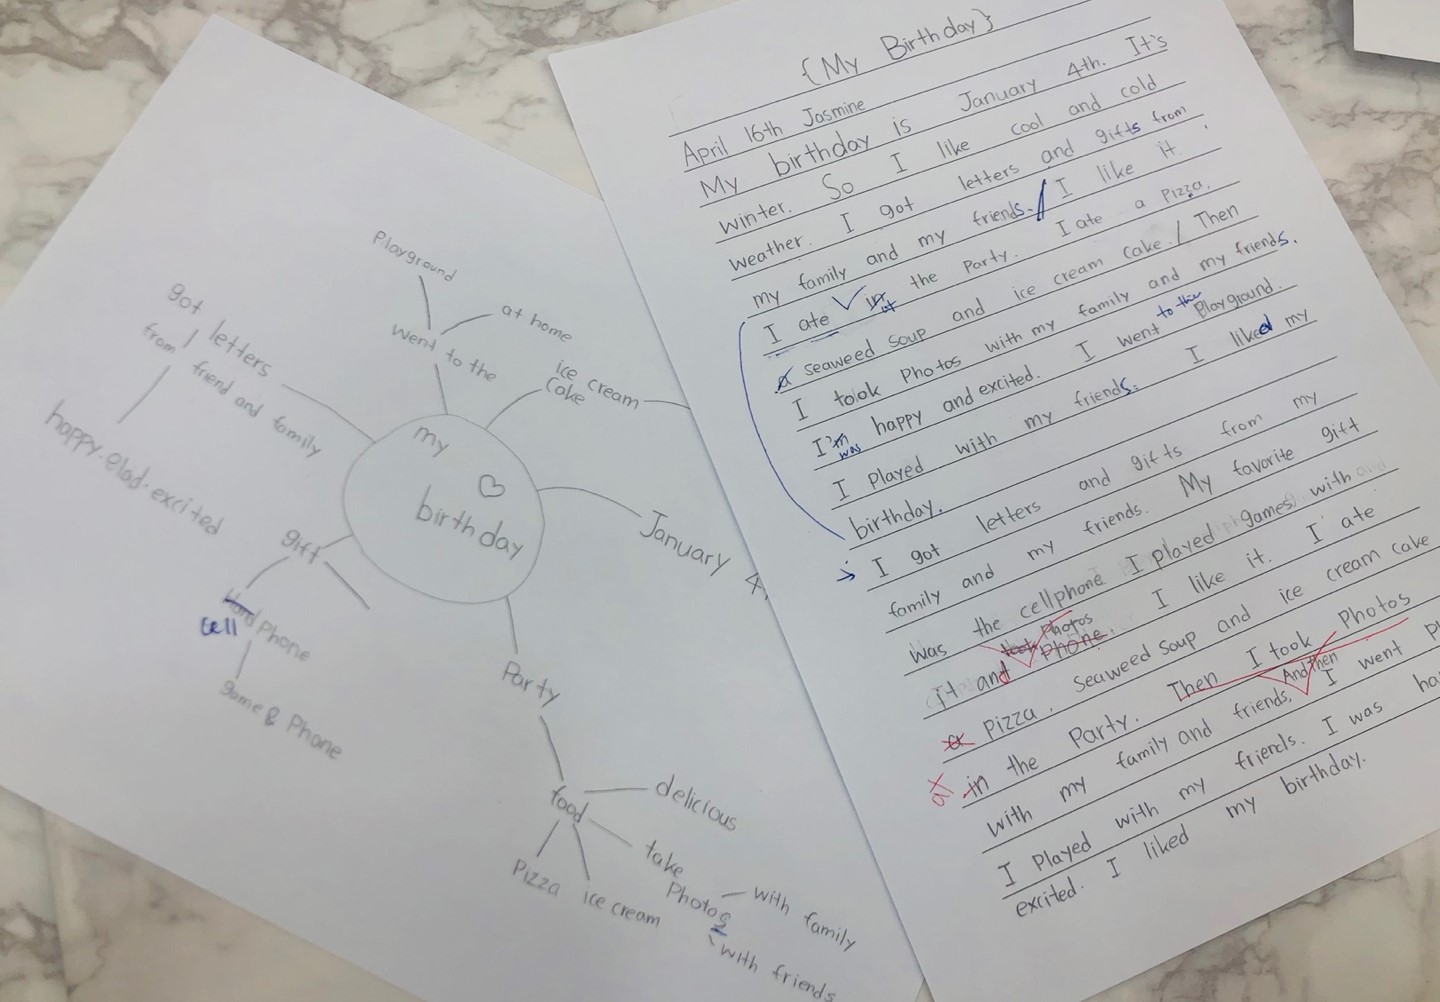 Playground
at home
went to the
ice cream
cake
got letters
from friend and family
happy. glad. excited
my
birthday
January 4,
gift
cell phone
game & Phone
Party
food
delicious
take
Photos
with family
with friends
Pizza
ice cream
{My Birthday}
April 16th Jasmine
My birthday is January 4th. It's
winter. So I like cool and cold
weather. I got letters and gifts from
my family and my friends. / I like it.
I ate in at the Party. I ate a Pizza,
a seaweed soup and ice cream cake. / Then
I took Photos with my family and my friends.
I'm was happy and excited. I went to the Playground.
I Played with my friends. I liked my
birthday.
→ I got letters and gifts from my
family and my friends. My favorite gift
was the cellphone I played games with
it and took Photos Phone. I like it. I ate
a pizza, seaweed soup and ice cream cake
at in the Party. Then I took Photos
with my family and friends. And then I went
I Played with my friends. I was
excited. I liked my birthday.